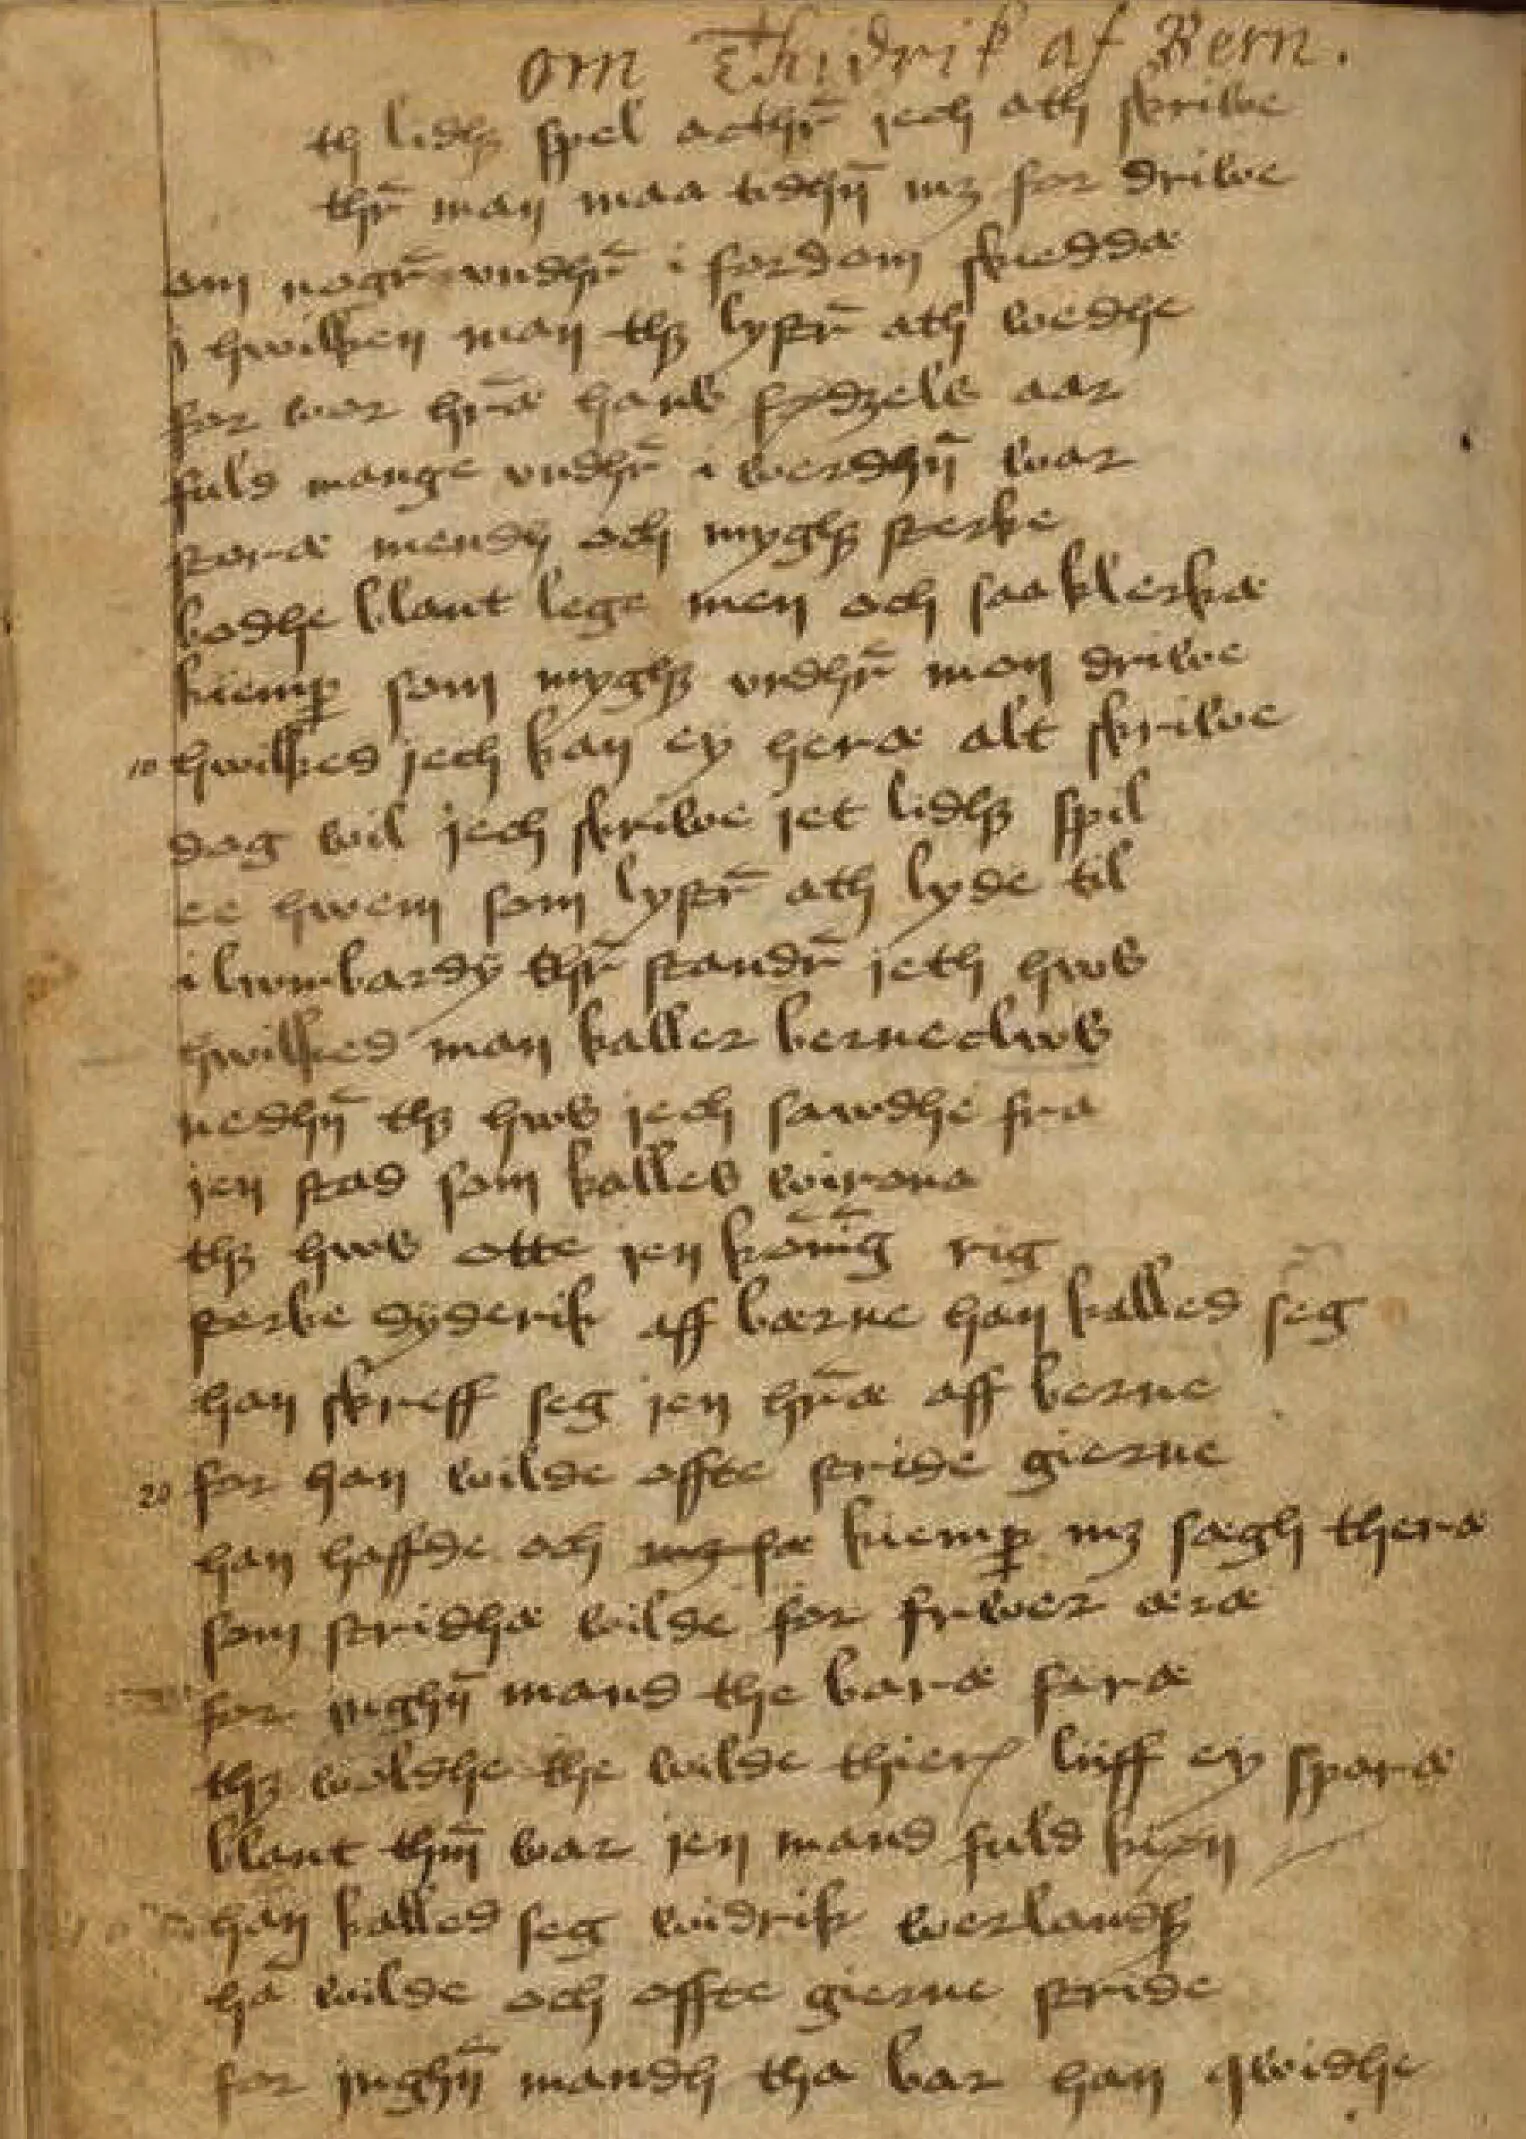 om Thidrik af Bern.
th lidhꝫ spel acthr̄ jech ath skriwe
thr̄ man maa tidhn̄ mꝫ for driwe
om nogr̄ vndhr̄ i fordom skeddæ
i hwilken man thꝫ lystr̄ ath wedhe
for wor hr̄æ hans fødzels aar
fuld mange vndhr̄ i werdhn̄ war
storæ mendh och myghꝫ sterke
bodhe blant lege men och saa klerkæ
kiemꝑ som myghꝫ vndhr̄ mon driwe
10 hwilked jech kan ey heræ alt skriwe
dog wil jech skriwe jet lidhꝫ spil
ee hwem som lystr̄ ath lyde til
i lwmbardÿ thr̄ standr̄ jeth hws
hwilked man kaller berneclws
nedhn̄ thꝫ hws jech sawdhe fra
jen stad som kalles wirona
thꝫ hws otte jen kōnīg rig
sterke dÿderik aff bærne han kalled seg
han skreff seg jen hr̄æ aff berne
20 for han wilde offte stride gierne
han haffde och kiemꝑ mꝫ sægh theræ
som stridhæ wilde for frwer æræ
for jnghn̄ mand the baræ faræ
thꝫ woldhe the wilde thier liiff ey sparæ
blant thm̄ war jen mand fuld kiøn
han kalled seg widrik werlandꝫ
hā wilde och offte gierne stride
for jnghn̄ mandh tha bar han qwidhe